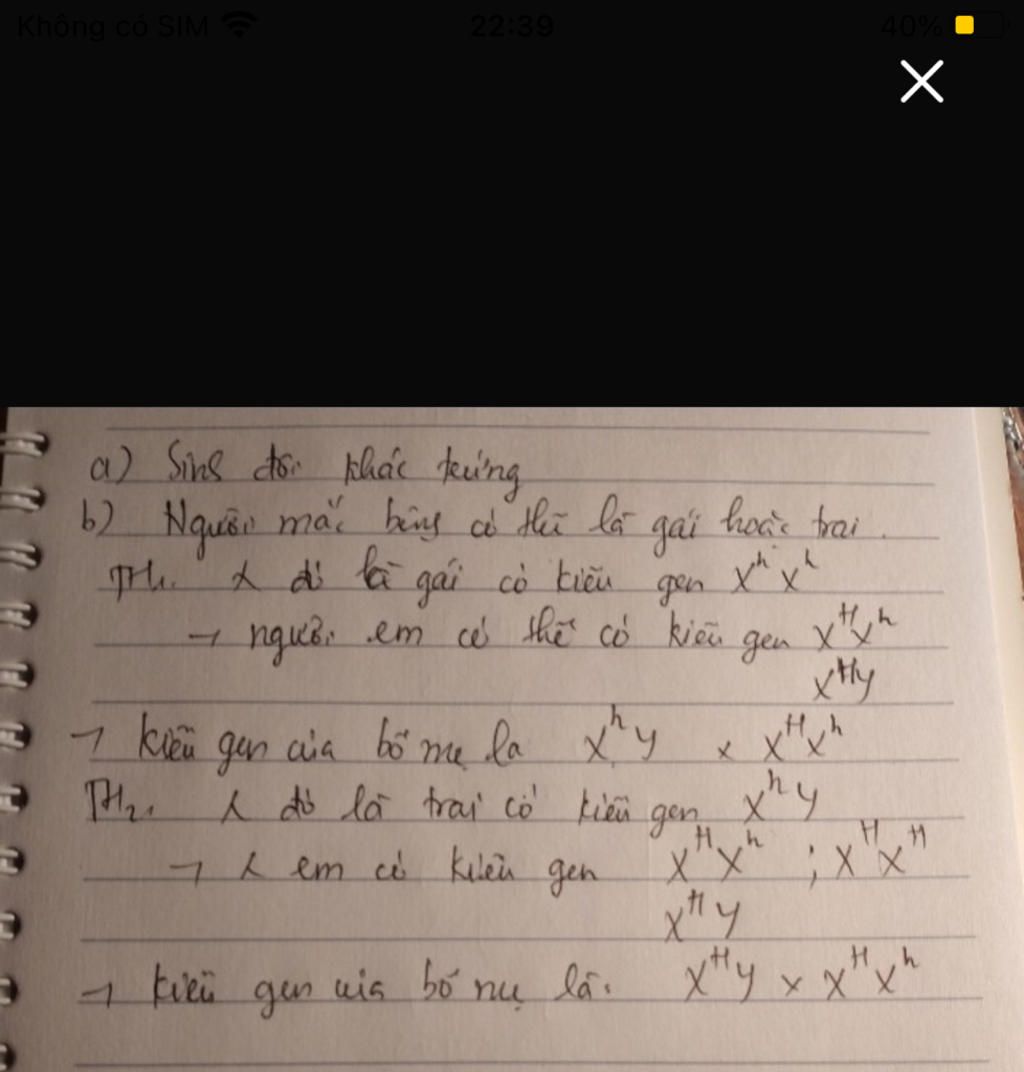 Không có SIM 22:39 40%
a) Sinh đôi khác trứng
b) Người mắc bệnh có thể là gái hoặc trai.
TH1. λ đó là gái có kiểu gen XʰXʰ
→ người em có thể có kiểu gen XᴴXʰ
XᴴY
→ kiểu gen của bố mẹ là XʰY × XᴴXʰ
TH2. λ đó là trai có kiểu gen XʰY
→ λ em có kiểu gen XᴴXʰ ; XᴴXᴴ
XᴴY
→ kiểu gen của bố mẹ là. XᴴY × XᴴXʰ